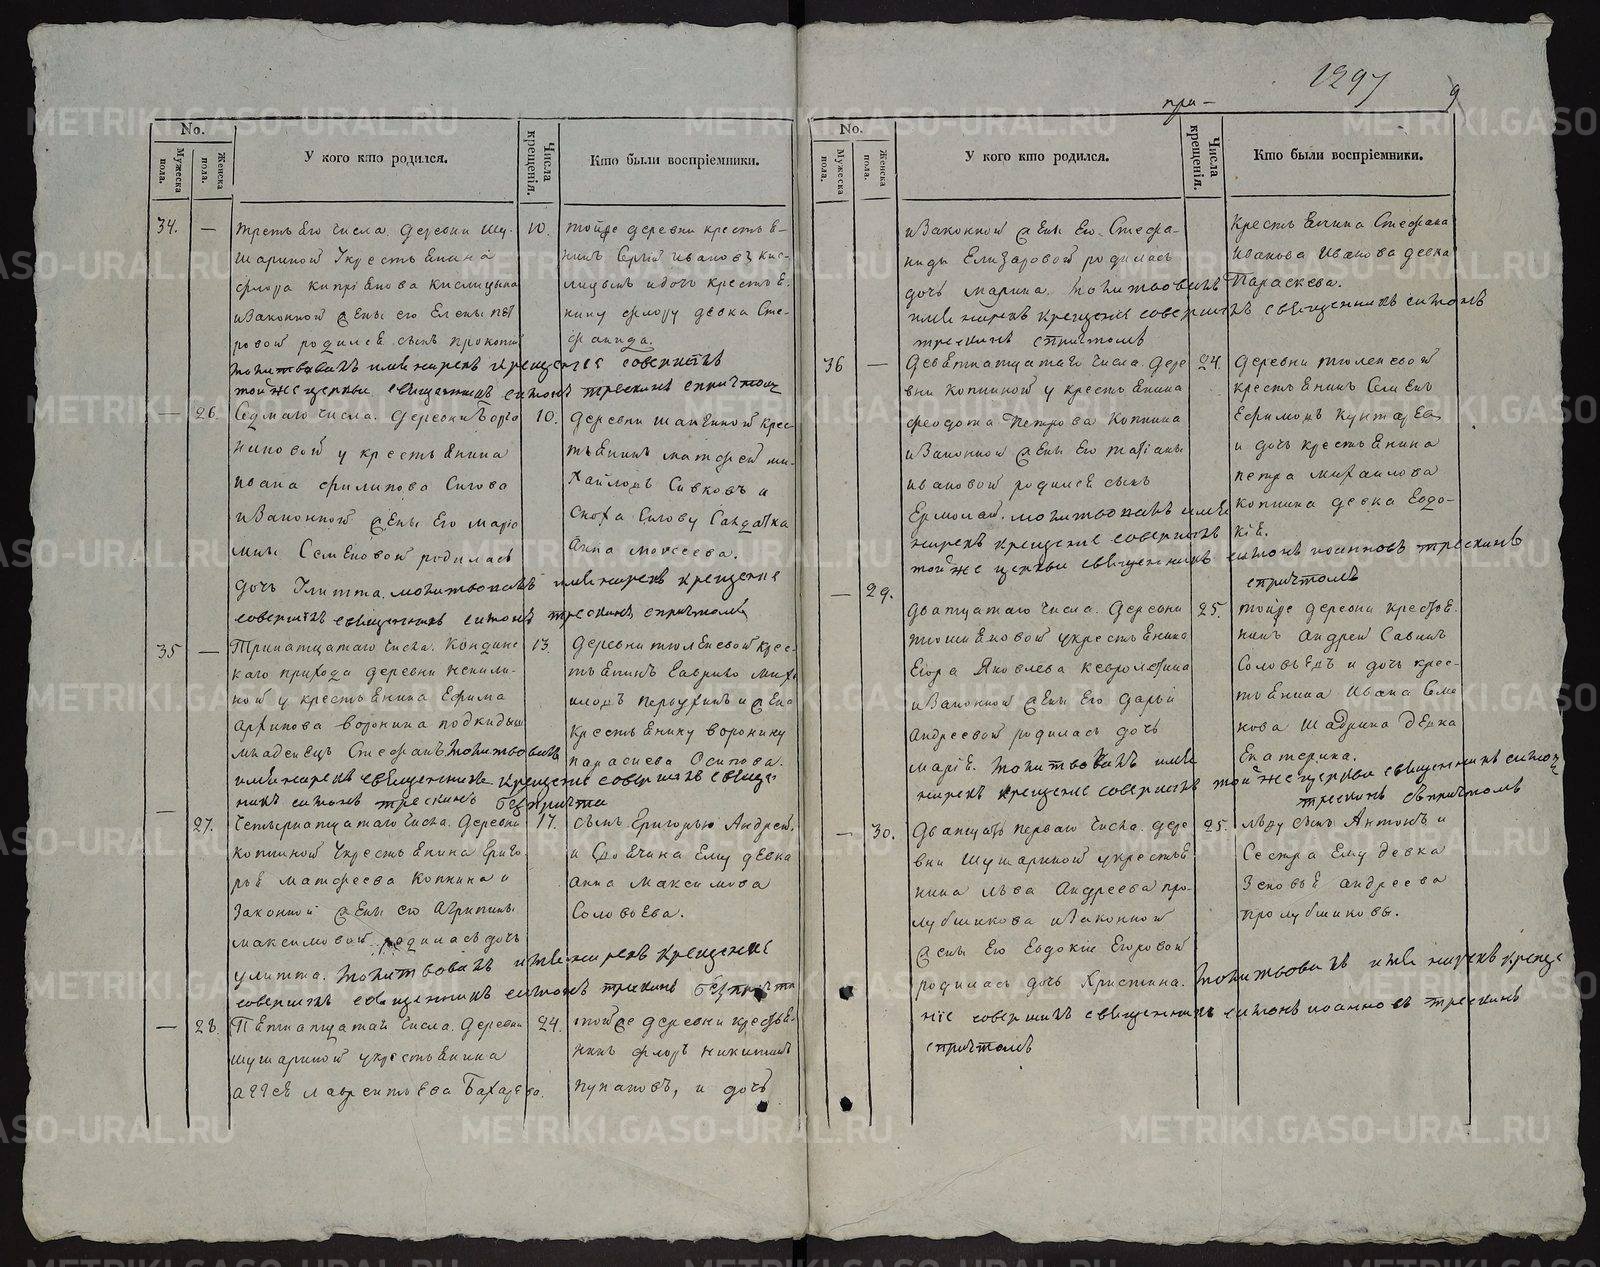 1297
9
при-
No.
Мужеска пола.
Женска пола.
У кого кто родился.
Числа крещенія.
Кто были воспріемники.
34. — третьего числа. деревни Шу-
шариной укрестьянина
флора кипріянова кислицына
изаконной жены его Елены пет
ровой родился сынъ прокопий
молитвовалъ имя нарекъ крещение совершилъ
той же церкви священникъ симонъ трескинъ спричтомъ
10. тойже деревни крестья-
нинъ Сергій ивановъ кис-
лицынъ идочь крестья-
нину флору девка Сте-
фанида.
— 26. Седмаго числа. деревни
ниновой у крестьянина
ивана филипова Сивова
изаконной жены Его Маріа
мны Семеновой родилась
дочь Улитта. молитвовалъ имя нарекъ крещение
совершилъ священникъ симонъ трескинъ спричтомъ
10. деревни шангиной крес
тьянинъ матфей ми-
хайловъ Сивковъ и
Сноха Сивову Салдатка
Анна Моисеева.
35 — Тринатцатаго числа.
каго прихода деревни
ной у крестьянина Ефима
Архипова воронина подкидыш
младенецъ Стефанъ молитвовалъ
имя нарекъ крещение совершилъ свяще
никъ симонъ трескинъ безпричта
13. деревни тюленевой крес-
тьянинъ Гаврило Миха
иловъ Первухинъ и жена
крестьянину воронину
парасева Осипова.
— 27. Четырнатцатаго числа. деревни
Коптиной укрестьянина Григо-
рья Матфеева Коптина и
Законной жены его Агрипины
максимовой родилась дочь
улитта. молитвовалъ имя нарекъ крещение
совершилъ священникъ симонъ трескинъ безпричта
17. сынъ Григорью Андрей.
и Своячина Ему девка
Анна Максимова
Соловьева.
— 28. Пятнатцатаго числа. деревни
шушариной укрестьянина
Аггея лаврентьева Бахарева.
24. тойже деревни крестья-
нинъ флоръ никитинъ
пупаговъ, и дочь
No.
Мужеска пола.
Женска пола.
У кого кто родился.
Числа крещенія.
Кто были воспріемники.
изаконной жены Его Стефа-
ниды Елизаровой родилась
дочь марина. молитвовалъ
имя нарекъ крещение совершилъ священникъ симонъ
трескинъ спричтомъ
Крестьянина Стефана
иванова Иванова девка
Параскева.
36 — Девятнатцатаго числа. дере
вни Коптиной у крестьянина
феодота петрова Коптина
изаконной жены Его татіаны
ивановой родился сынъ
Ермолай. молитвовалъ имя
нарекъ крещение совершилъ
той же церкви священникъ симонъ иоанновъ трескинъ
спричтомъ
24. деревни тюленевой
крестьянинъ Семенъ
Ефимовъ
и дочь крестьянина
петра михайлова
Коптина девка Евдо-
кія.
— 29. Дватцатаго числа. деревни
укрестьянина
Егора Яковлева
изаконной жены Его дарьи
Андреевой родилась дочь
марія. молитвовалъ имя
нарекъ крещение совершилъ той же церкви священникъ симонъ
трескинъ съпричтомъ
25. тойже деревни крестья-
нинъ Андрей Савинъ
Соловьевъ и дочь крес-
тьянина Ивана Семе
нова Шадрина девка
Екатерина.
— 30. Дватцать перваго числа. дере
вни Шушариной укрестья
нина льва Андреева про-
лубщикова изаконной
жены Его Евдокіи Егоровой
родилась дочь Христина. молитвовалъ имя нарекъ креще
ніе совершилъ священникъ симонъ иоанновъ трескинъ
спричтомъ
25. льву сынъ Антонъ и
Сестра Ему девка
Зеновья андреева
пролубщикова.